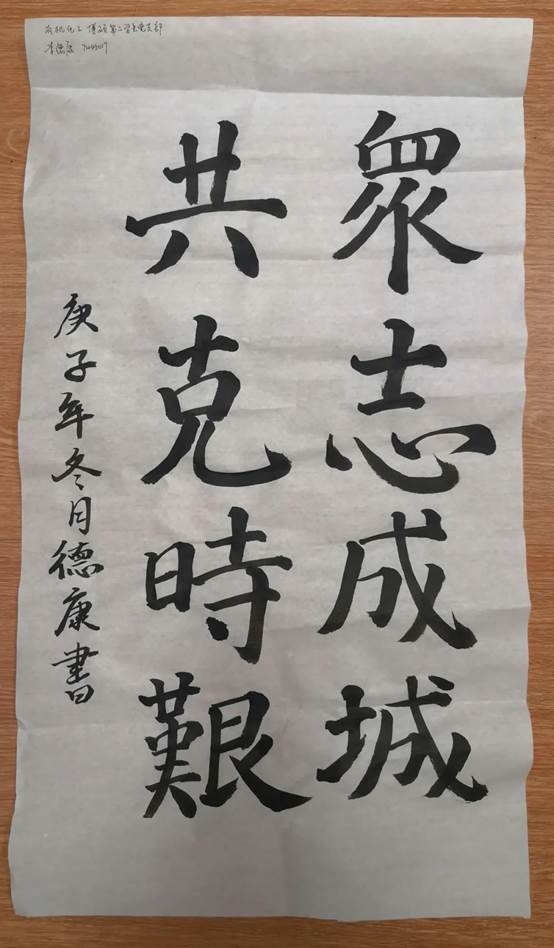 有机化工博硕第二学生党支部
李德康
眾志成城
共克時艱
庚子年冬月德康書